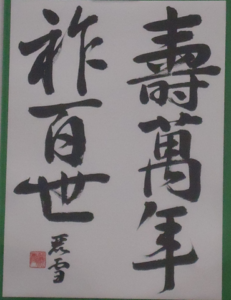 壽萬年
祚百世
麗雪